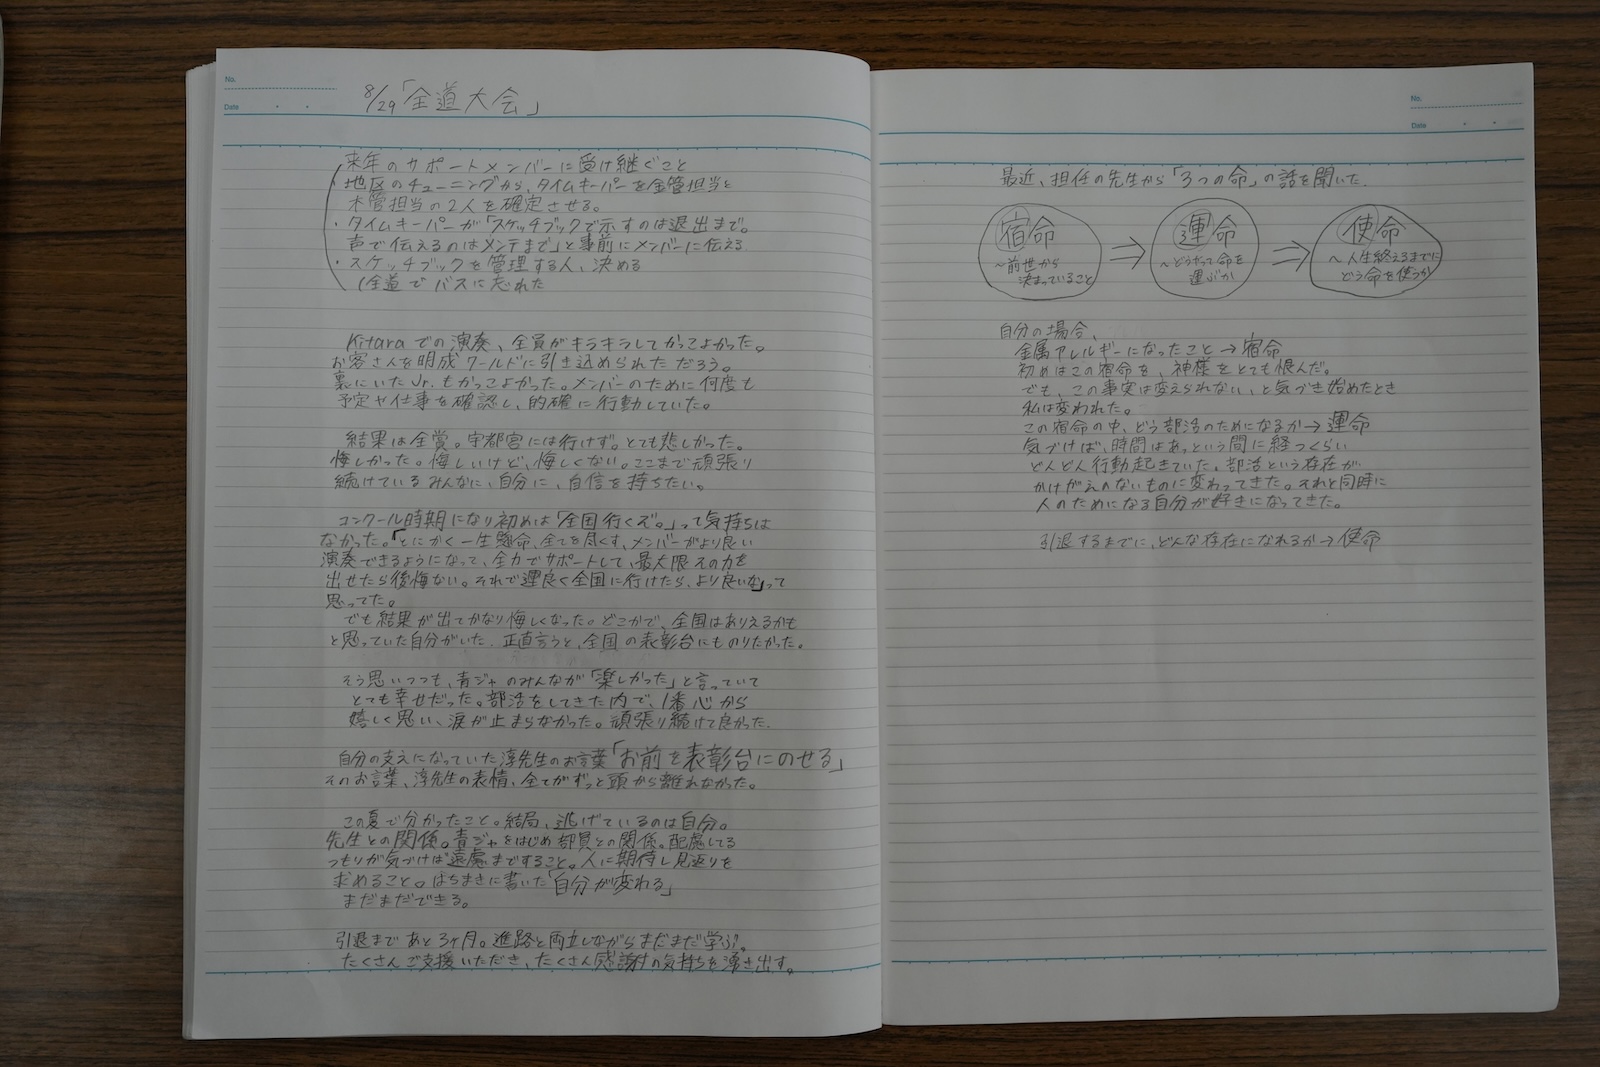 No.
Date
8/29「全道大会」
来年のサポートメンバーに受け継ぐこと
・地区のチューニングから、タイムキーパーを金管担当と
木管担当の2人を確定させる。
・タイムキーパーが「スケッチブックで示すのは退出まで。
声で伝えるのはメンテまで」と事前にメンバーに伝える
・スケッチブックを管理する人、決める
(全道でバスに忘れた
Kitaraでの演奏、全員がキラキラしてかっこよかった。
お客さんを明成ワールドに引き込められただろう。
裏にいたJr.もかっこよかった。メンバーのために何度も
予定や仕事を確認し、的確に行動していた。
結果は金賞。宇都宮には行けず。とても悲しかった。
悔しかった。悔しいけど、悔しくない。ここまで頑張り
続けているみんなに、自分に、自信を持ちたい。
コンクール時期になり初めは「全国行くぞ。」って気持ちは
なかった。「とにかく一生懸命、全てを尽くす、メンバーがより良い
演奏できるようになって、全力でサポートして、最大限その力を
出せたら後悔ない。それで運良く全国に行けたら、より良いな」って
思ってた。
でも結果が出てかなり悔しくなった。どこかで、全国はありえるかも
と思っていた自分がいた。正直言うと、全国の表彰台にものりたかった。
そう思いつつも、青ジャのみんなが「楽しかった」と言っていて
とても幸せだった。部活をしてきた内で、1番心から
嬉しく思い、涙が止まらなかった。頑張り続けて良かった。
自分の支えになっていた淳先生のお言葉「お前を表彰台にのせる」
そのお言葉、淳先生の表情、全てがずっと頭から離れなかった。
この夏で分かったこと。結局、逃げているのは自分。
先生との関係。青ジャをはじめ部員との関係。配慮してる
つもりが気づけば遠慮まですること。人に期待し見返りを
求めること。はちまきに書いた「自分が変わる」
まだまだできる。
引退まであと3ヶ月。進路と両立しながらまだまだ学ぶ。
たくさんご支援いただき、たくさん感謝の気持ちを湧き出す。
No.
Date
最近、担任の先生から「3つの命」の話を聞いた。
宿命
～前世から
決まっていること
⇒
運命
～どうやって命を
運ぶか
⇒
使命
～人生終えるまでに
どう命を使うか
自分の場合、
金属アレルギーになったこと→宿命
初めはこの宿命を、神様をとても恨んだ。
でも、この事実は変えられない、と気づき始めたとき
私は変われた。
この宿命の中、どう部活のためになるか→運命
気づけば、時間はあっという間に経つくらい
どんどん行動起きていた。部活という存在が
かけがえのないものに変わってきた。それと同時に
人のためになる自分が好きになってきた。
引退するまでに、どんな存在になれるか→使命